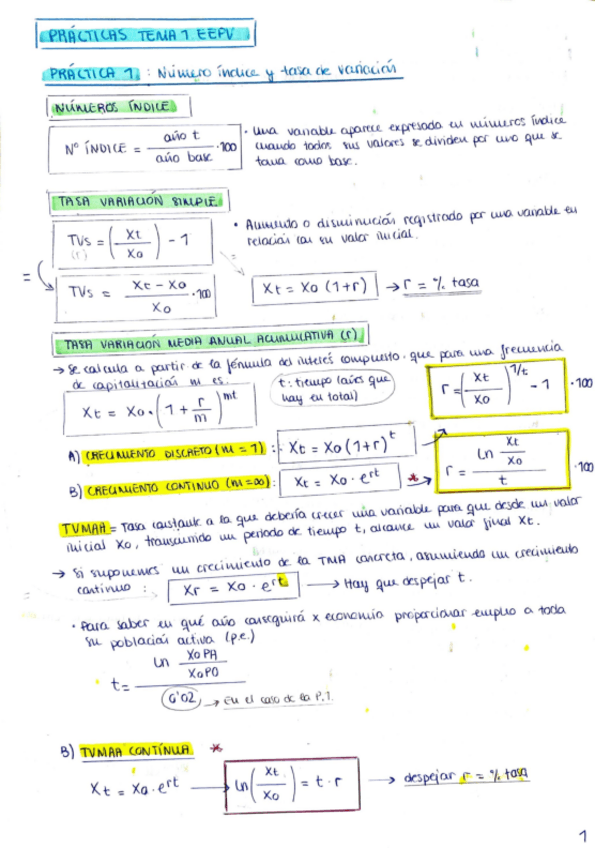 PRÁCTICAS TEMA 1 EEPV
PRÁCTICA 1: Número índice y tasa de variación
NÚMEROS ÍNDICE
Nº ÍNDICE = año t / año base · 100
· Una variable aparece expresada en números índice
cuando todos sus valores se dividen por uno que se
toma como base.
TASA VARIACIÓN SIMPLE
TVs = (Xt / Xo) - 1
(r)
· Aumento o disminución registrado por una variable en
relación con su valor inicial.
=
TVs = Xt - Xo / Xo · 100
Xt = Xo (1+r) → r = % tasa
TASA VARIACIÓN MEDIA ANUAL ACUMULATIVA (r)
→ Se calcula a partir de la fórmula del interés compuesto. que para una frecuencia
de capitalización m es:
Xt = Xo · (1 + r/m)^mt
t: tiempo (años que
hay en total)
r = (Xt / Xo)^1/t - 1 · 100
A) CRECIMIENTO DISCRETO (m = 1): Xt = Xo (1+r)^t
B) CRECIMIENTO CONTINUO (m = ∞): Xt = Xo · e^rt *
r = ln Xt/Xo / t · 100
TVMAA = Tasa constante a la que debería crecer una variable para que desde un valor
inicial Xo, transcurrido un periodo de tiempo t, alcance un valor final Xt.
→ Si suponemos un crecimiento de la TMA concreta, asumiendo un crecimiento
continuo: Xr = Xo · e^rt → Hay que despejar t.
· Para saber en qué año conseguirá x economía proporcionar empleo a toda
su población activa (p.e.)
t = ln XoPA/XoPO / 0'02 → En el caso de la P.1.
B) TVMAA CONTÍNUA *
Xt = Xo · e^rt → ln (Xt / Xo) = t · r → despejar r = % tasa
1